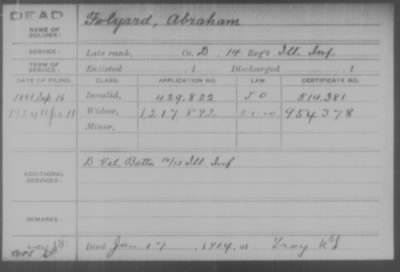 DEAD
NAME OF SOLDIER: Folyard, Abraham
SERVICE: Late rank, Co. D, 14 Reg't Ill. Inf.
TERM OF SERVICE: Enlisted , 1 Discharged , 1
DATE OF FILING. CLASS. APPLICATION NO. LAW. CERTIFICATE NO.
1881 Sep 16 Invalid, 429.822 514.381
Apr 11 Widow, 1217.892 954378
Minor,
ADDITIONAL SERVICES: D Vet. Batt. 14/15 Ill Inf
REMARKS:
Died Jan 17, 1924, at Troy